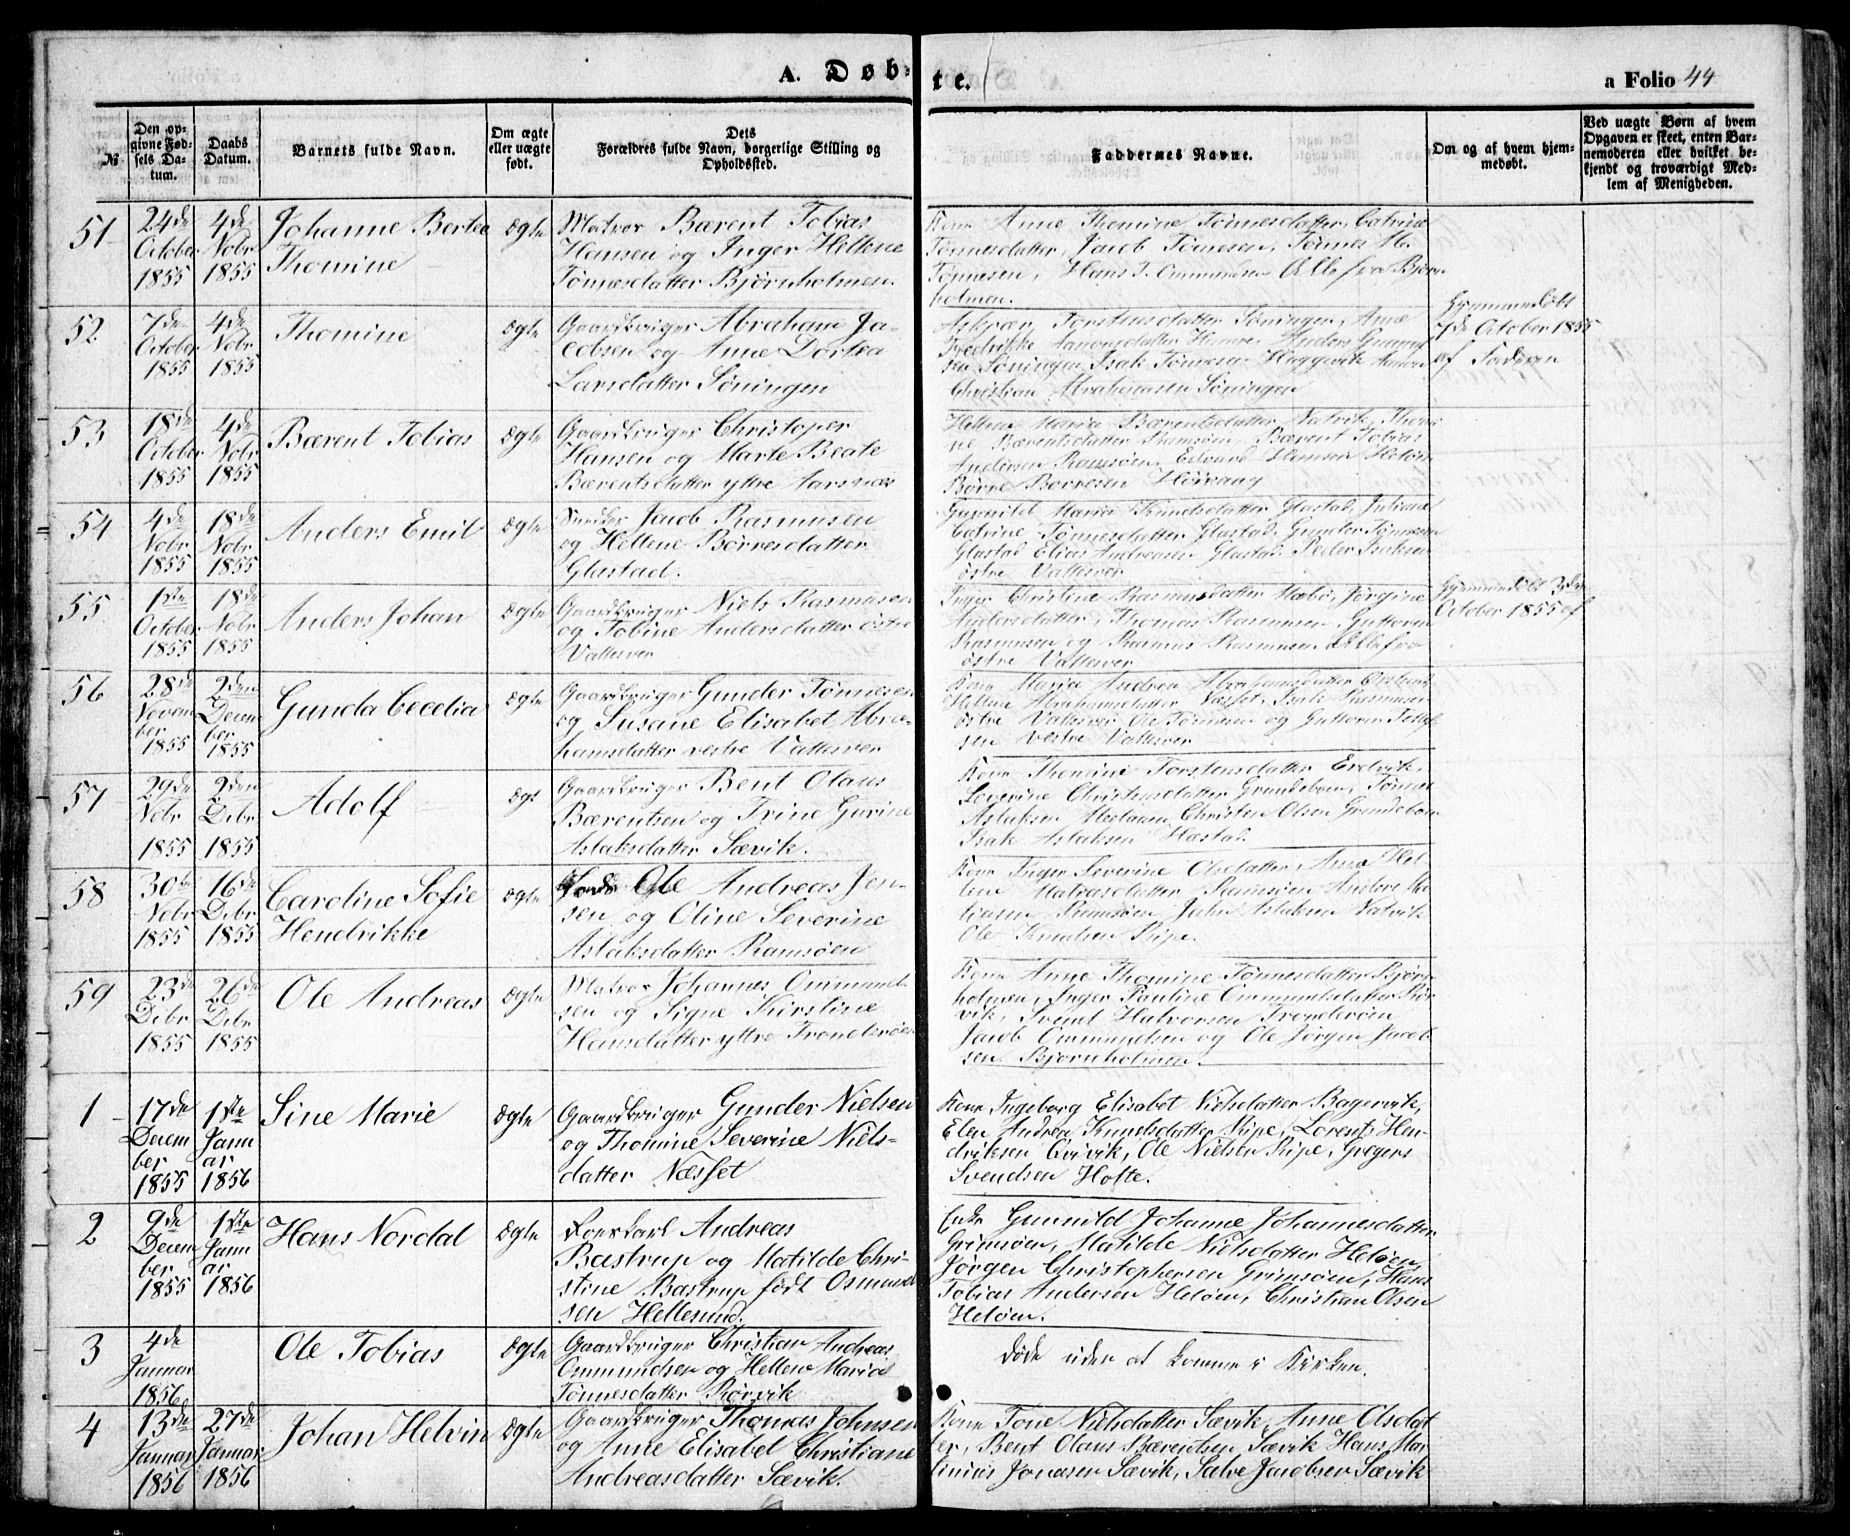 A. Døb-
te.
a Folio 44
№
Den op-
givne Fød-
sels Da-
tum.
Daabs
Datum.
Barnets fulde Navn.
Om ægte
eller uægte
født.
Dets
Forældres fulde Navn, borgerlige Stilling og
Opholdssted.
Faddernes Navne.
Om og af hvem hjem-
medøbt.
Ved uægte Børn af hvem
Opgaven er skeet, enten Bar-
nemoderen eller hvilket be-
kjendt og troværdigt Med-
lem af Menigheden.
51
24de
October
1855
4de
Nobr
1855
Johanne Bertea
Thomine
Ægte
Matros Bærent Tobias
Hansen og Inger Hellene
Tønnesdatter Bjørnholmen.
Kone Anne Thomine Tønnesdatter, Catrine
Tønnesdatter, Jacob Tønnesen, Tønnes
Tønnesen, Hans T. Ommundsen Alle fra Bjørn
holmen.
52
7de
October
1855
4de
Nobr
1855
Thomine
Ægte
Gaardbruger Abraham Ja-
cobsen og Anne Dortea
Larsdatter Søningen
Torstensdatter Søningen, Anne
Fredrikke Aanonsdatter Anders
Søningen, Isak Tønnesen Haggevik
Christian Abrahamsen Søningen
Hjemmedøbt
7de October 1855
af Faderen
53
18de
October
1855
4de
Nobr
1855
Bærent Tobias
Ægte
Gaardbruger Christoper
Hansen og Marte Beate
Bærentsdatter yttre Aarsnæs
Hellene Maria Bærentsdatter Natvik, Thomi
ne Bærentsdatter Ramsøen, Bærent Tobias
Andersen Ramsøen, Edvard Hansen Heløen
Børre Børresen Høivaag
54
4de
Nobr
1855
18de
Nobr
1855
Anders Emil
Ægte
Jacob Rasmusen
og Hellene Børresdatter
Glastad.
Gunnild Maria Knudsdatter Glastad, Juliane
Catrine Tønnesdatter Glastad, Gunder Tønnesen
Glastad Elias Andreasen Glastad Peder Isaksen
østre Vallesver
55
1ste
October
1855
18de
Nobr
1855
Anders Johan
Ægte
Gaardbruger Niels Rasmusen
og Tobine Andersdatter østre
Vallesver
Inger Christine Rasmusdatter Mæbø, Jørgine
Andersdatter, Thomas Rasmusen, Guttorm
Rasmusen og Rasmus Rasmusen Alle fra
østre Vallesver
Hjemmedøbt 3die
October 1855 af
56
28de
Novem
ber
1855
2den
Decem
ber
1855
Gunda Cecelia
Ægte
Gaardbruger Gunder Tønnesen
og Susane Elisabet Abra-
hamsdatter vestre Vallesver
Kone Maria Andrea Abrahamsdatter
Hellene Abrahamsdatter Vasset, Isak Rasmusen
østre Vallesver Ole Tønnesen og Guttorm
sen vestre Vallesver
57
29de
Nobr
1855
2den
Debr
1855
Adolf
Ægt
Gaardbruger Bent Olaus
Bærentsen og Trine Gurine
Aslaksdatter Sævik.
Kone Thomine Torstensdatter Eidvik,
Severine Christensdatter Grundebom, Tønnes
Aslaksen Christen Olsen Grundebom
Isak Aslaksen Hæstad
58
30te
Nobr
1855
16de
Debr
1855
Caroline Sofie
Hendrikke
Ægte
Ole Andreas Jen-
sen og Oline Severine
Aslaksdatter Ramsøen
Kone Inger Severine Olsdatter, Anne Hel-
lene Ramsøen Anders
Ramsøen John Aslaksen Natvik
Ole Knudsen Kipe.
59
23de
Debr
1855
26de
Debr
1855
Ole Andreas
Ægte
Matros Johannes Ommund
sen og Signe Kirstine
Hansdatter yttre Tronderøen
Kone Anne Thomine Tønnesdatter Bjørn
holmen, Inger Pauline Ommundsdatter Rør
vik, Svent Halvorsen Tronderøen
Jacob Ommundsen og Ole Jørgen Jacob
sen Bjørnholmen.
1
17de
Decem
ber
1855
1ste
Janu
ar
1856
Sine Marie
Ægte
Gaardbruger Gunder Nielsen
og Thomine Severine Niels-
datter Næsset
Kone Ingeborg Elisabet Nielsdatter Bagervik,
Elen Andrea Knudsdatter Kipe, Lorents Hen-
driksen Ole Nielsen Kipe, Gregers
Svendsen Hofte.
2
9de
Decem
ber
1855
1ste
Janu
ar
1856
Hans Nordal
Ægte
Andreas
Bastrup og Matilde Chri-
stine Bastrup født Osmund
sen Hellesund.
Enke Gunnild Johanne Johannesdatter
Grimsøen, Matilde Nielsdatter Heløen,
Jørgen Christophersen Grimsøen, Hans
Tobias Andersen Heløen, Christian Olsen
Heløen.
3
4de
Januar
1856
Ole Tobias
Ægte
Gaardbruger Christian Andreas
Ommundsen og Hellene Maria
Tønnesdatter Rørvik
døde uden at komme i Kirken.
4
13de
Januar
1856
27de
Januar
1856
Johan Helvin
Ægte
Gaardbruger Thomas Johnsen
og Anne Elisabet Christiane
Andreasdatter Sævik.
Kone Tone Nielsdatter Sævik, Anne Olsdat
ter, Bent Olaus Bærentsen Sævik Hans Mar
tinias Jonassen Sævik, Salve Jacobsen Sævik